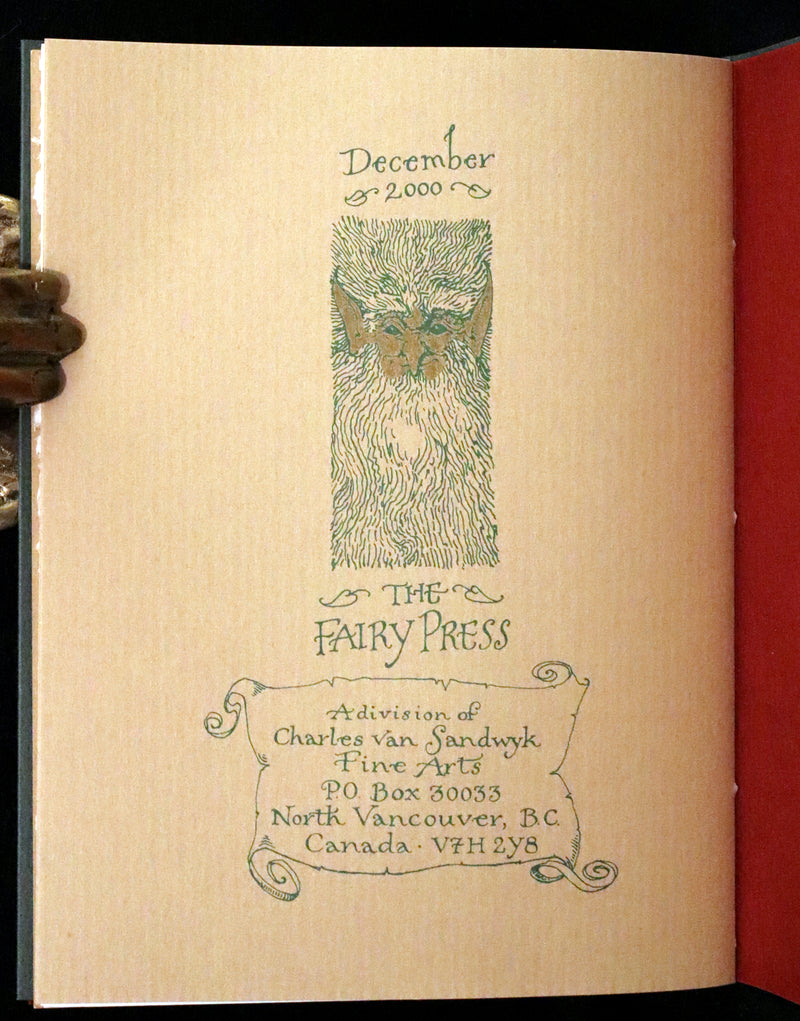 December
2000
THE
FAIRY PRESS
A division of
Charles van Sandwyk
Fine Arts
P.O. Box 30033
North Vancouver, B.C.
Canada · V7H 2Y8